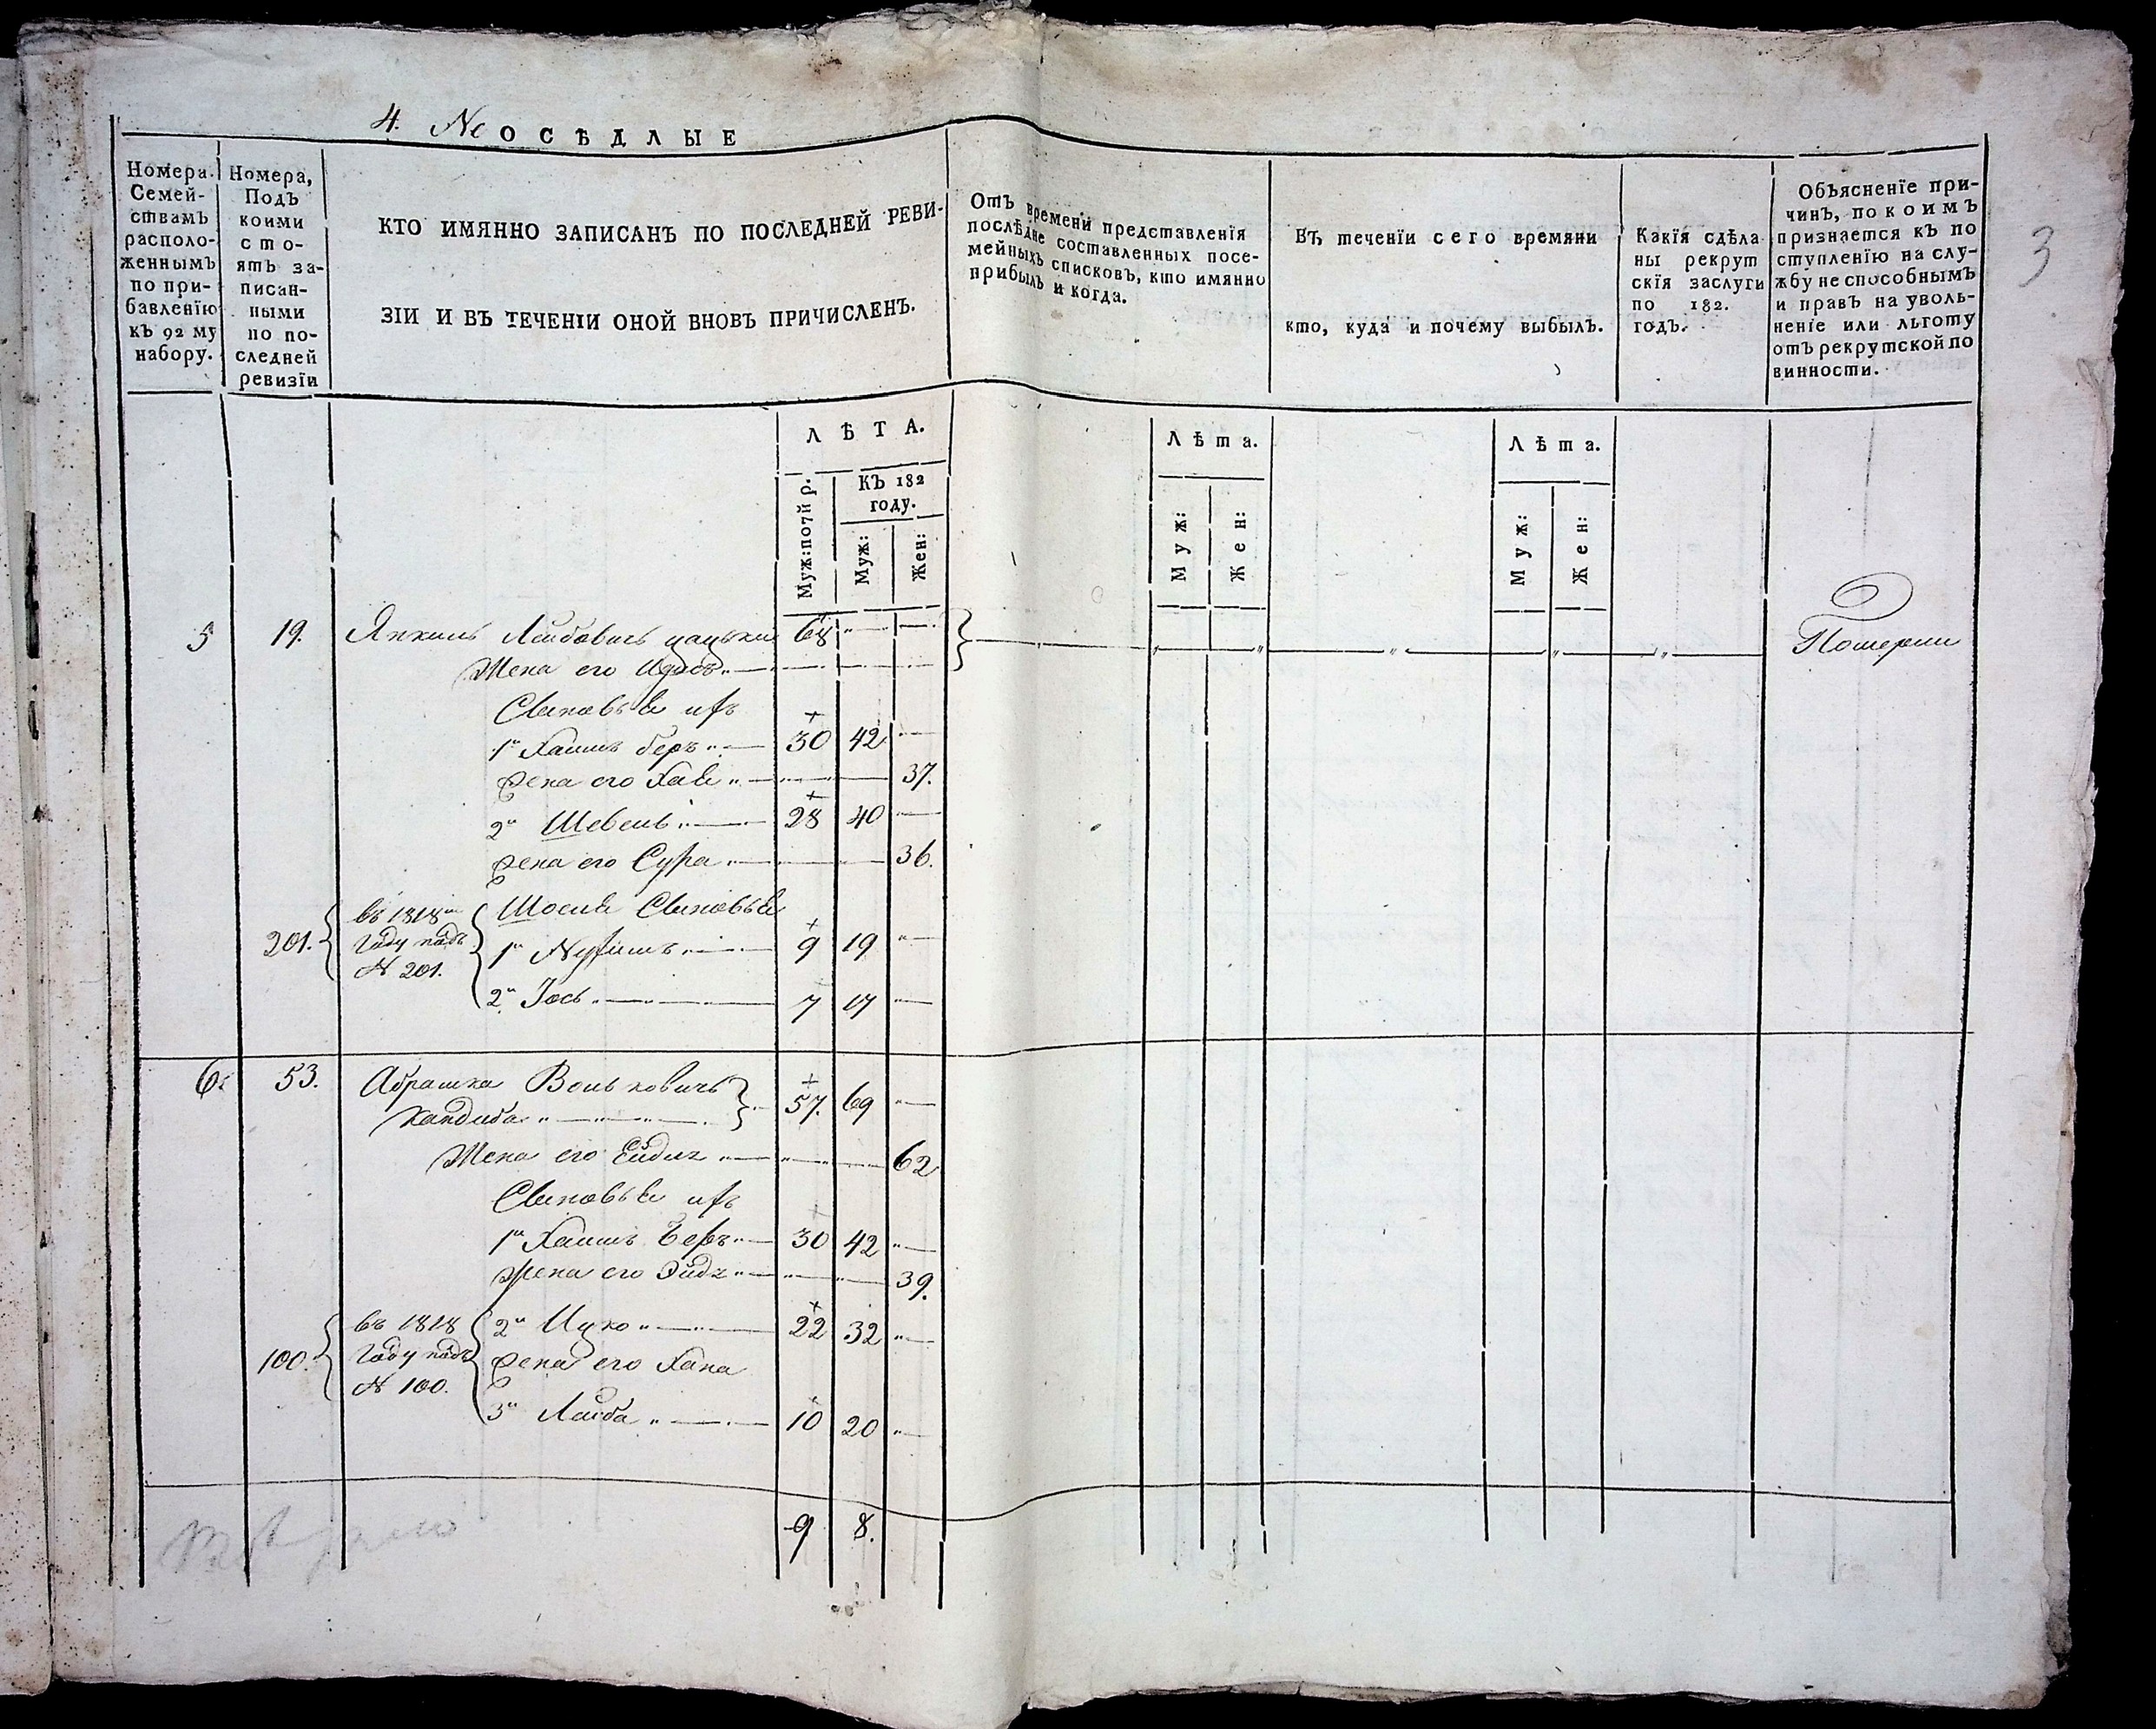 4. Не ОСѢДЛЫЕ
3
Номера
Семей-
ствамъ
располо-
женнымъ
по при-
бавленію
къ 92 му
набору.
Номера,
Подъ
коими
сто-
ятъ за-
писан-
ными
по по-
следней
ревизіи
КТО ИМЯННО ЗАПИСАНЪ ПО ПОСЛЕДНЕЙ РЕВИ-
ЗІИ И ВЪ ТЕЧЕНІИ ОНОЙ ВНОВЬ ПРИЧИСЛЕНЪ.
Отъ времени представленія
послѣдне составленныхъ посе-
мейныхъ списковъ, кто имянно
прибылъ и когда.
Въ теченіи сего времяни
кто, куда и почему выбылъ.
Какія сдѣла
ны рекрут
скія заслуги
по 182.
годъ.
Объясненіе при-
чинъ, по коимъ
признается къ по
ступленію на слу-
жбу не способнымъ
и правъ на уволь-
неніе или льготу
отъ рекрутской по
винности.
ЛѢТА.
Муж: по 7й р.
КЪ 182
году.
Муж:
Жен:
Лѣта.
Муж:
Жен:
Лѣта.
Муж:
Жен:
5 19. Янкиль Лейбовичъ 68
Жена его
Сыновья ихъ
1й Хаимъ беръ 30 42
жена его Хая 37.
2й Шевель 28 40
жена его Сура 36.
201. въ 1818м
году подъ
N 201.
Шоеля Сыновья
1й Нухимъ 9 19
2й Іось 7 17
6 53. Абрашка Вольковичъ
Кандиба 57. 69
Жена его Ейдля 62
Сыновья ихъ
1й Хаимъ Беръ 30 42
жена его Эйдя 39.
100. въ 1818
году подъ
N 100.
2й Ицко 22 32
жена его Хана
3й Лейба 10 20
9 8.
Померли